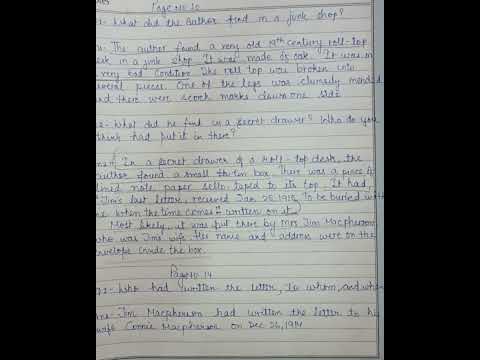 Page No 10
1- What did the author find in a junk shop?
The author found a very old 19th century roll-top
in a junk shop. It was made of oak. It was in
very bad condition. The roll top was broken into
several pieces. One of the legs was clumsily mended
and there were scorch marks down one side
2- What did he find in a secret drawer? Who do you
think had put it in there?
In a secret drawer of a roll-top desk, the
author found a small tin box. There was a piece of
lined note paper sello taped to its top. It had,
"Jim's last letter, received Jan 25, 1915. To be buried with
me when the time comes" written on it.
Most likely, it was put there by Mrs Jim Macpherson
who was Jim's wife. Her name and address were on the
envelope inside the box.
Page No. 14
1- Who had written the letter, to whom, and when
Jim Macpherson had written the letter to his
wife Connie Macpherson on Dec 26, 1914